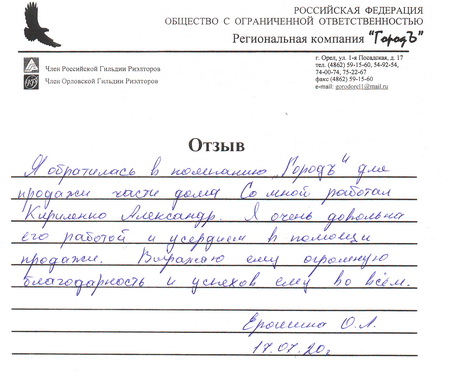 РОССИЙСКАЯ ФЕДЕРАЦИЯ
ОБЩЕСТВО С ОГРАНИЧЕННОЙ ОТВЕТСТВЕННОСТЬЮ
Региональная компания "ГородЪ"
Член Российской Гильдии Риэлторов
Член Орловской Гильдии Риэлторов
г. Орел, ул. 1-я Посадская, д. 17
тел. (4862) 59-15-60, 54-92-54,
74-00-74, 75-22-67
факс (4862) 59-15-60
e-mail: gorodorel1@mail.ru
Отзыв
Я обратилась в компанию "Городъ" для
продажи части дома Со мной работал
Кириленко Александр. Я очень довольна
его работой и усердием в помощи
продажи. Выражаю ему огромную
благодарность и успехов ему во всём.
Ерошина О.Л.
17.07.20г.